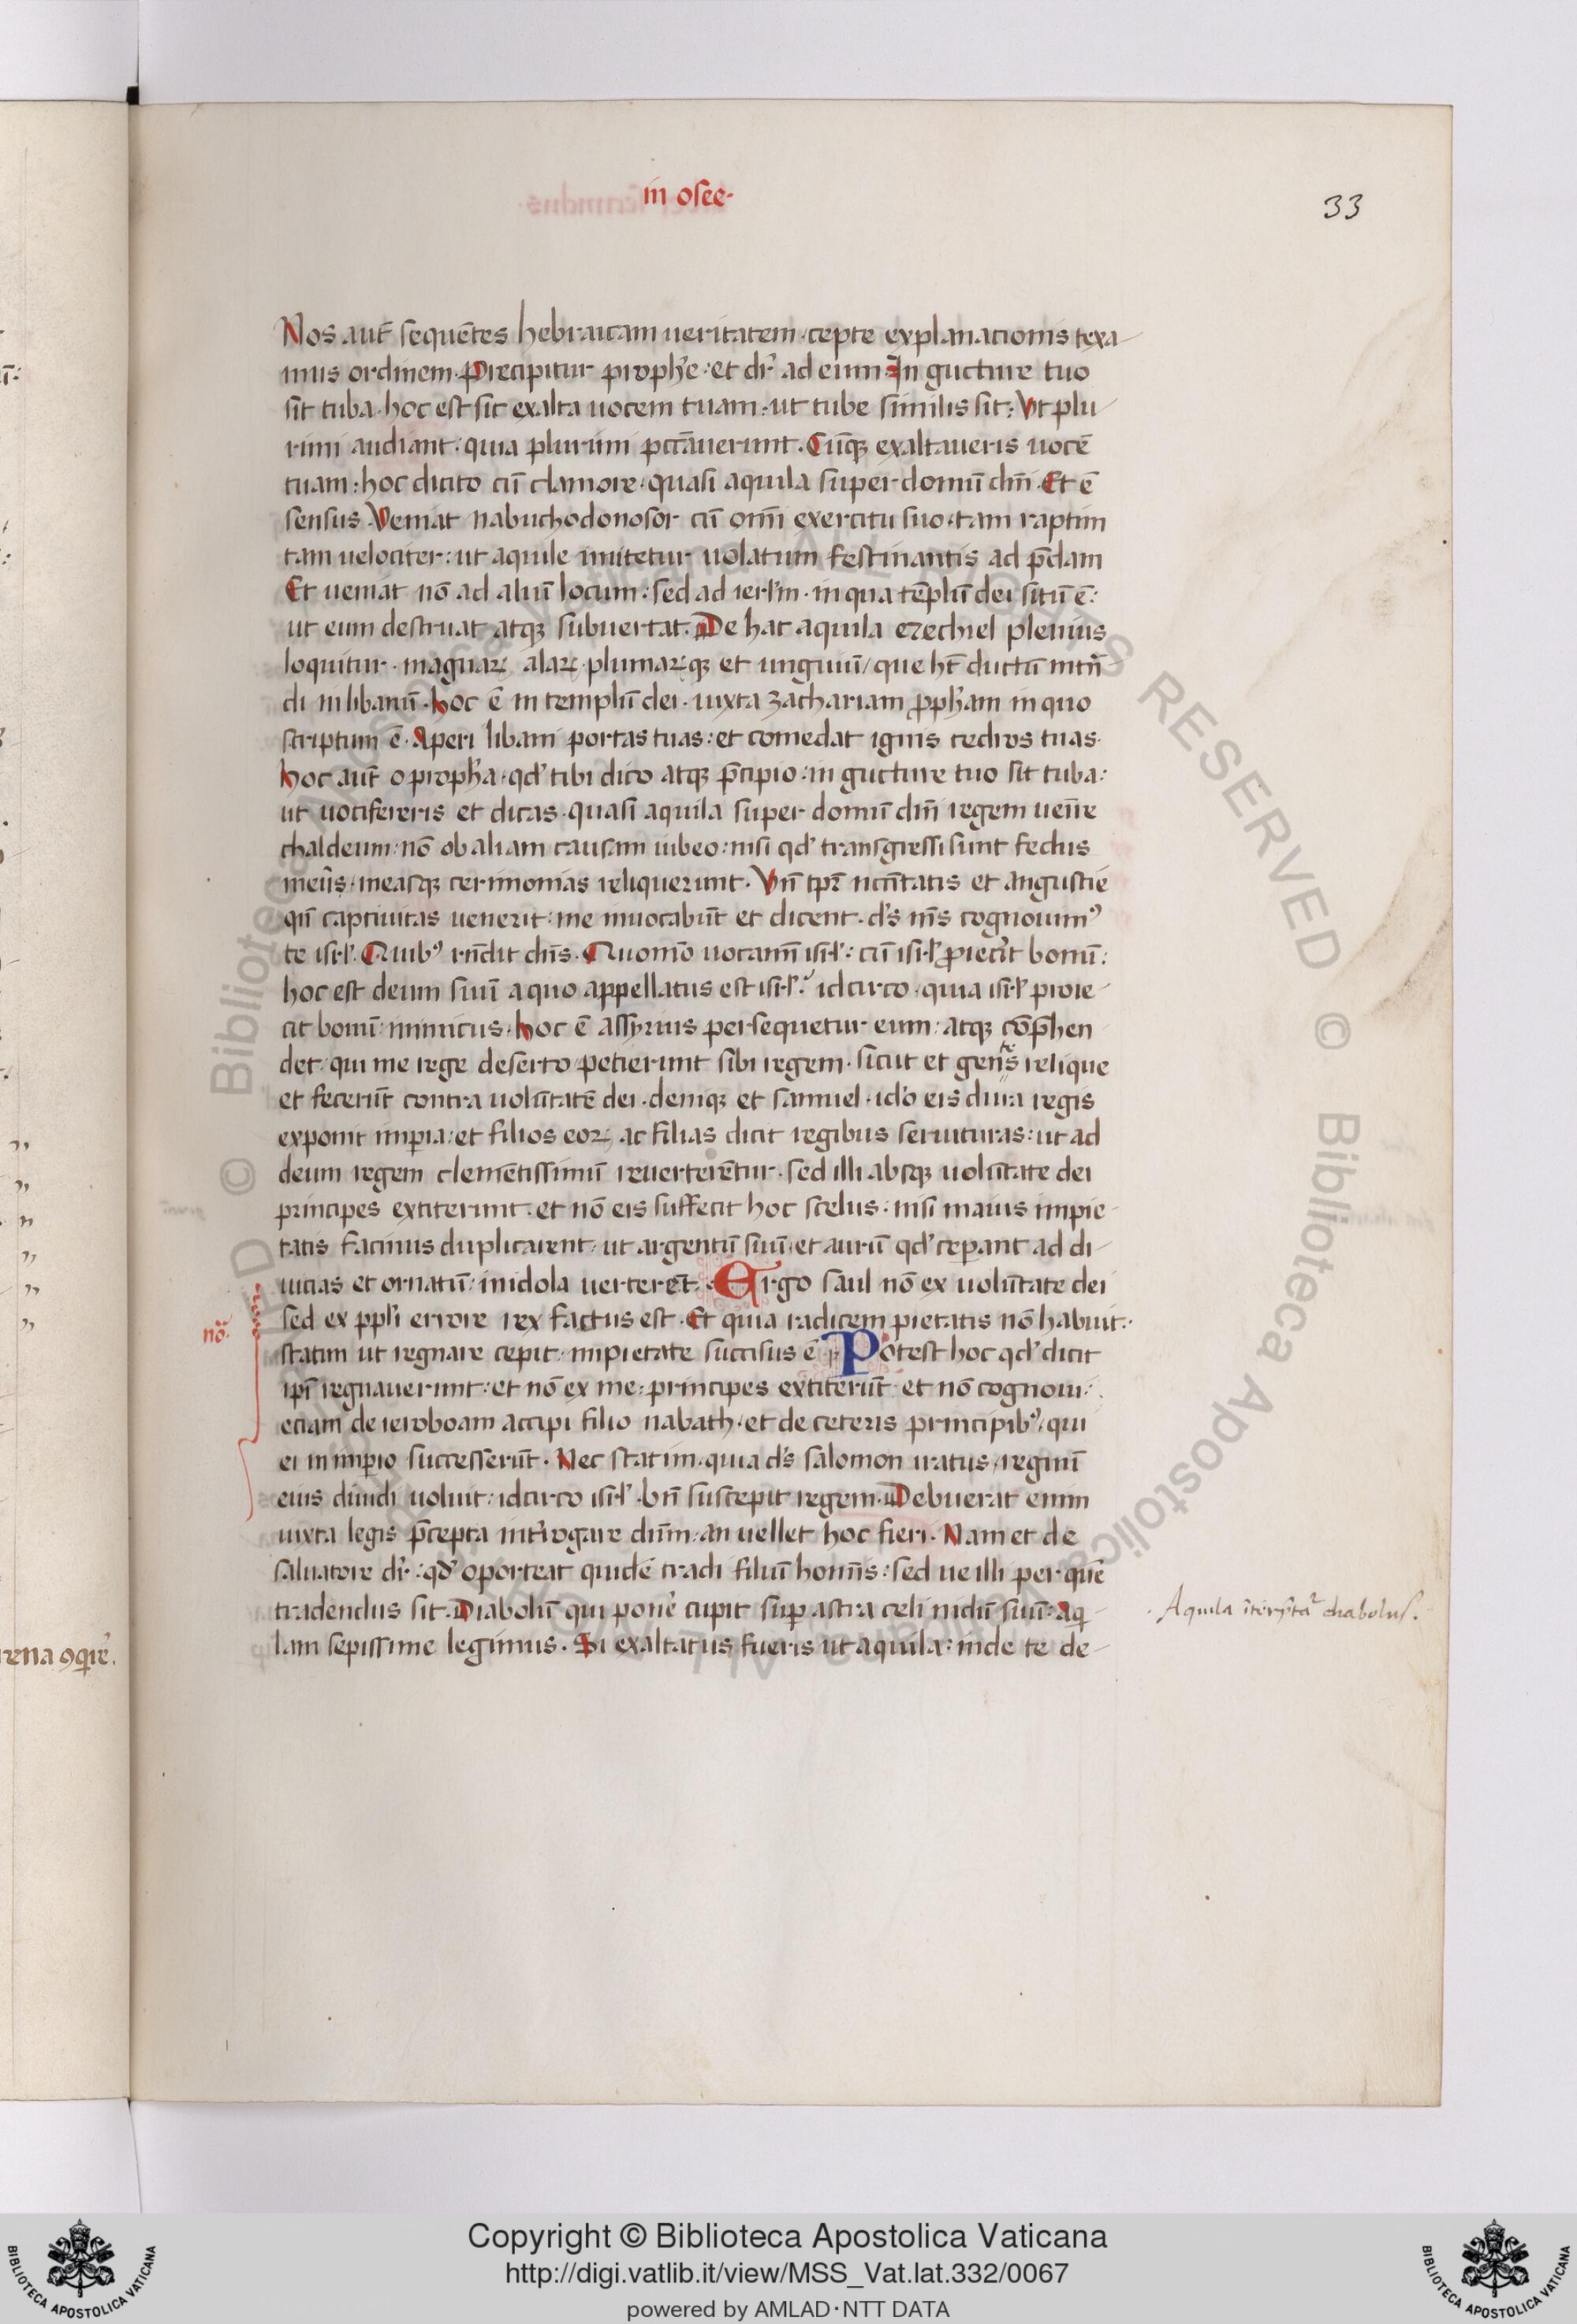 in osee·
33
Nos aut̄ sequētes hebraicam ueritatem·cepte explanationis texa-
mus ordinem·Precipitur prophe᷑:et dr̄ ad eum In gucture tuo
sit tuba·hoc est sic exalta uocem tuam:ut tube similis sit:Vt plu-
rimi audiant:quia plurimi pctāuerunt.Cūqꝫ exaltaueris uocē
tuam:hoc dicito cū clamore·quasi aquila super domū dn̄i·Et ē
sensus·Veniat nabuchodonosor cū om̄i exercitu suo·tam raptim
tam uelociter:ut aquile imitetur uolatum festinantis ad p̄dam
Et ueniat nō ad aliū locum:sed ad ierl̄m·in qua tēplū dei sitū ē:
ut eum destruat atqꝫ subuertat.De hac aquila ezechiel plenius
loquitur·magnaꝝ alaꝝ·plumaꝝqꝫ et unguiū/que ht̄ ductū intn̄-
di in libanū·hoc ē in templū dei·iuxta zachariam ꝓpham in quo
scriptum ē·Aperi libani portas tuas:et comedat ignis cedros tuas·
hoc aut̄ o propha·qd' tibi dico atqꝫ p̄cipio:in gucture tuo sit tuba:
ut uocifereris et dicas·quasi aquila super domū dn̄i regem uen̄re
chaldeum:nō ob aliam causam iubeo:nisi qd' transgressi sunt fedus
meūs·measqꝫ cerimonias reliquerunt.Vn̄ tp̄r nccītatis et angustie
qn̄ captiuitas uenerit:me inuocabūt et dicent·d's m̄s cognouimꝰ
te isrl'.Quibꝰ rn̄dit dn̄s.Quomō uocam̄ isrl':cū isrl' ꝓiecit bonū:
hoc est deum suū a quo appellatus est isrl'? idcirco·quia isrl' proie-
cit bonū:inimicus·hoc ē assyrius persequetur eum:atqꝫ cōp̄hen-
det·qui me rege deserto petierunt sibi regem·sicut et gen̄s relique
et fecerūt contra uolūtatē dei·deniqꝫ et samuel·id'o eis dura regis
exponit imꝑia:et filios eoꝝ ac filias dicit regibus seruituras:ut ad
deum regem clemētissimū reuerterētur·sed illi absqꝫ uolūtate dei
principes extiterunt·et nō eis suffecit hoc scelus:nisi maius impie-
tatis facinus duplicarent·ut argentū suū·et aurū qd' ceꝑant ad di-
uitias et ornatū:in idola uerterēt.Ergo saul nō ex uolūtate dei
sed ex ppl'i errore rex factus est·Et quia radicem pietatis nō habuit·
nō
statim ut regnare cepit·impietate succisus ē Potest hoc qd' dicit
ip̄i regnauerunt:et nō ex me:principes extiterūt·et nō cognoui:
etiam de ieroboam accipi filio nabath·et de ceteris principibꝰ·qui
ei in imꝑio successerūt·Nec statim·quia d's salomon iratus·regnū
eius diuidi uoluit:idcirco isrl'·bn̄ suscepit regem·Debuerat enim
iuxta legis p̄cepta int'rogare dn̄m:an uellet hoc fieri·Nam et de
saluatore dr̄:qd' oporteat quidē tradi filiū homīs:sed ue illi per quē
tradendus sit.Diabolū qui pone' cupit suꝑ astra celi nidū suū:aq-
·Aquila īterp̄ta' diabolus.
lam sepissime legimus·Si exaltatus fueris ut aquila:inde te de-
Copyright © Biblioteca Apostolica Vaticana
http://digi.vatlib.it/view/MSS_Vat.lat.332/0067
powered by AMLAD·NTT DATA